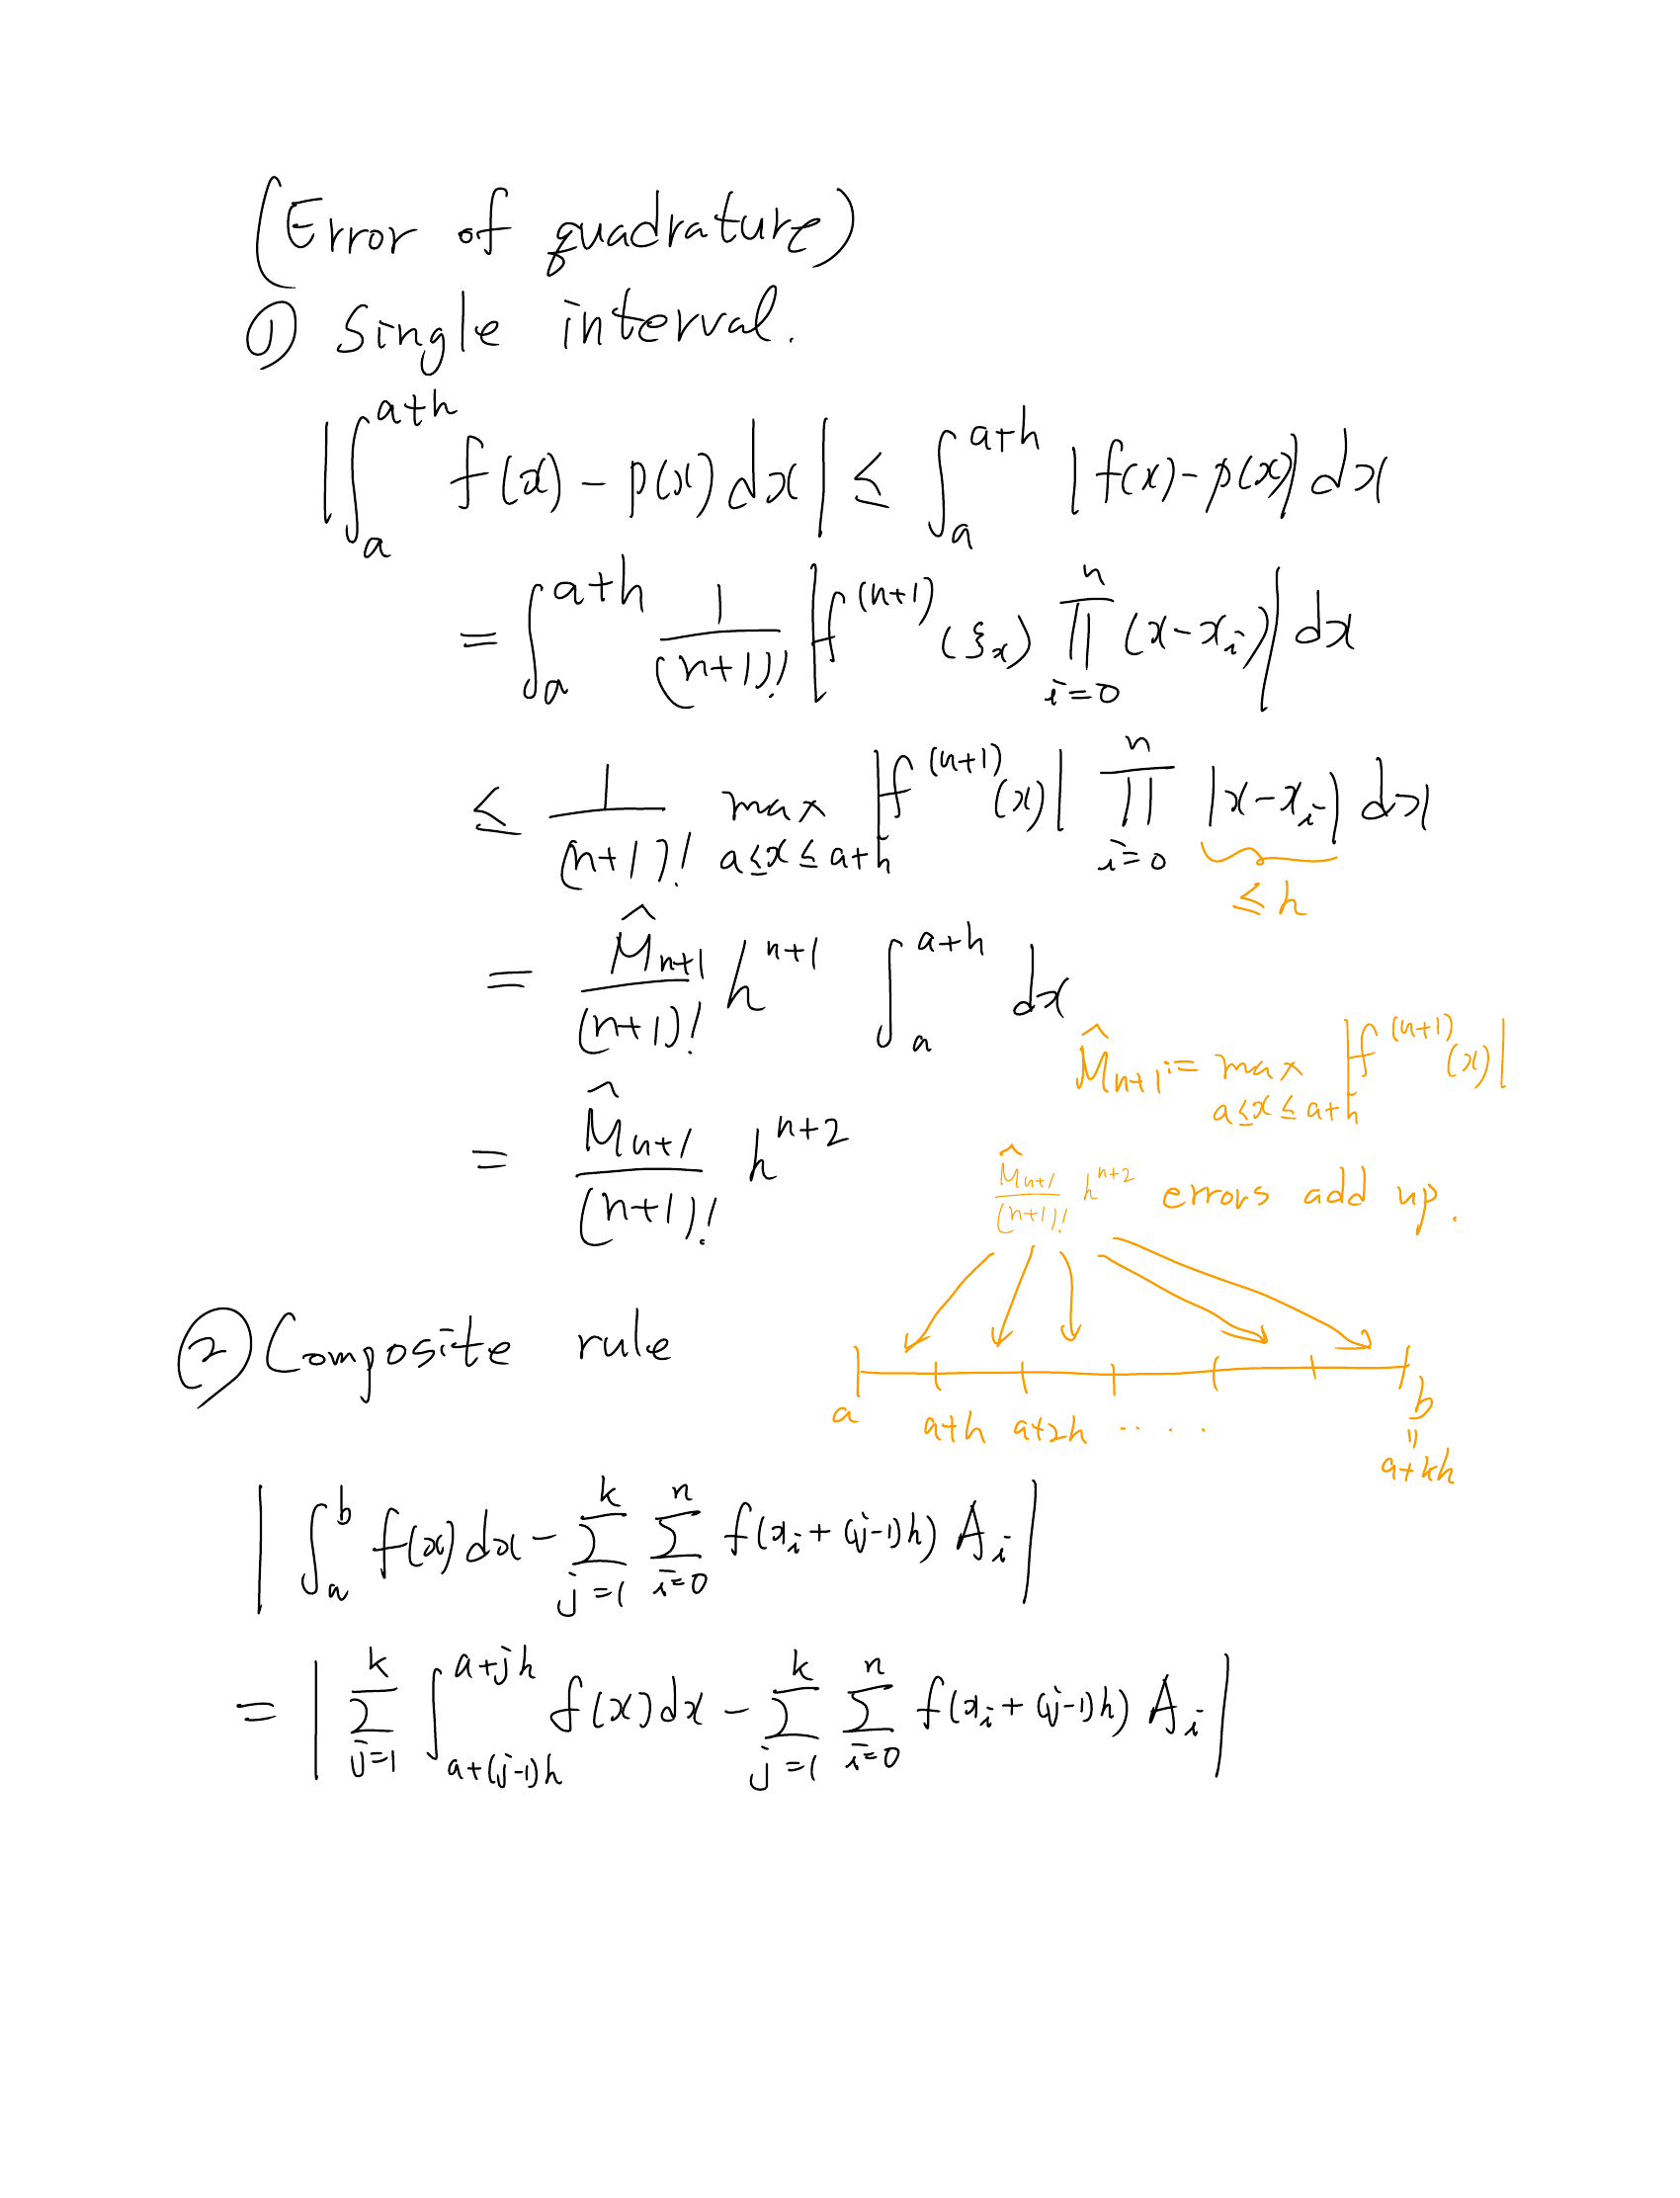 (Error of quadrature)
① Single interval.
|∫_a^{a+h} f(x) - p(x) dx| ≤ ∫_a^{a+h} |f(x) - p(x)| dx
= ∫_a^{a+h} 1/(n+1)! |f^{(n+1)}(ξ_x) ∏_{i=0}^n (x - x_i)| dx
≤ 1/(n+1)! max_{a≤x≤a+h} |f^{(n+1)}(x)| ∏_{i=0}^n |x - x_i| dx
≤ h
= M̂_{n+1}/(n+1)! h^{n+1} ∫_a^{a+h} dx
M̂_{n+1} := max_{a≤x≤a+h} |f^{(n+1)}(x)|
= M̂_{n+1}/(n+1)! h^{n+2}
M̂_{n+1}/(n+1)! h^{n+2} errors add up.
② Composite rule
a a+h a+2h ····· b
=
a+kh
|∫_a^b f(x) dx - ∑_{j=1}^k ∑_{i=0}^n f(x_i + (j-1)h) A_i|
= |∑_{j=1}^k ∫_{a+(j-1)h}^{a+jh} f(x) dx - ∑_{j=1}^k ∑_{i=0}^n f(x_i + (j-1)h) A_i|